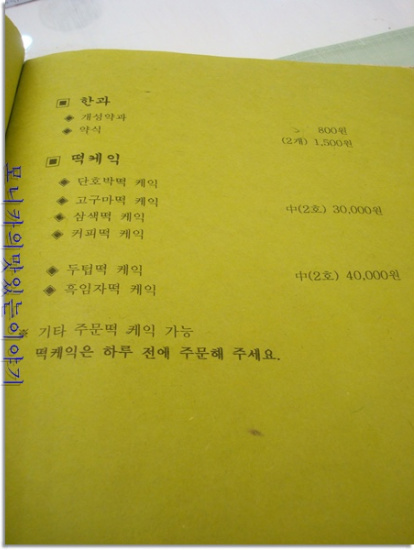 ▣ 한과
◈ 개성약과
◈ 약식
> 800원
(2개) 1,500원
▣ 떡케익
◈ 단호박떡 케익
◈ 고구마떡 케익
◈ 삼색떡 케익
◈ 커피떡 케익
中(2호) 30,000원
◈ 두텁떡 케익
◈ 흑임자떡 케익
中(2호) 40,000원
※ 기타 주문떡 케익 가능
떡케익은 하루 전에 주문해 주세요.
모니카의맛있는이야기